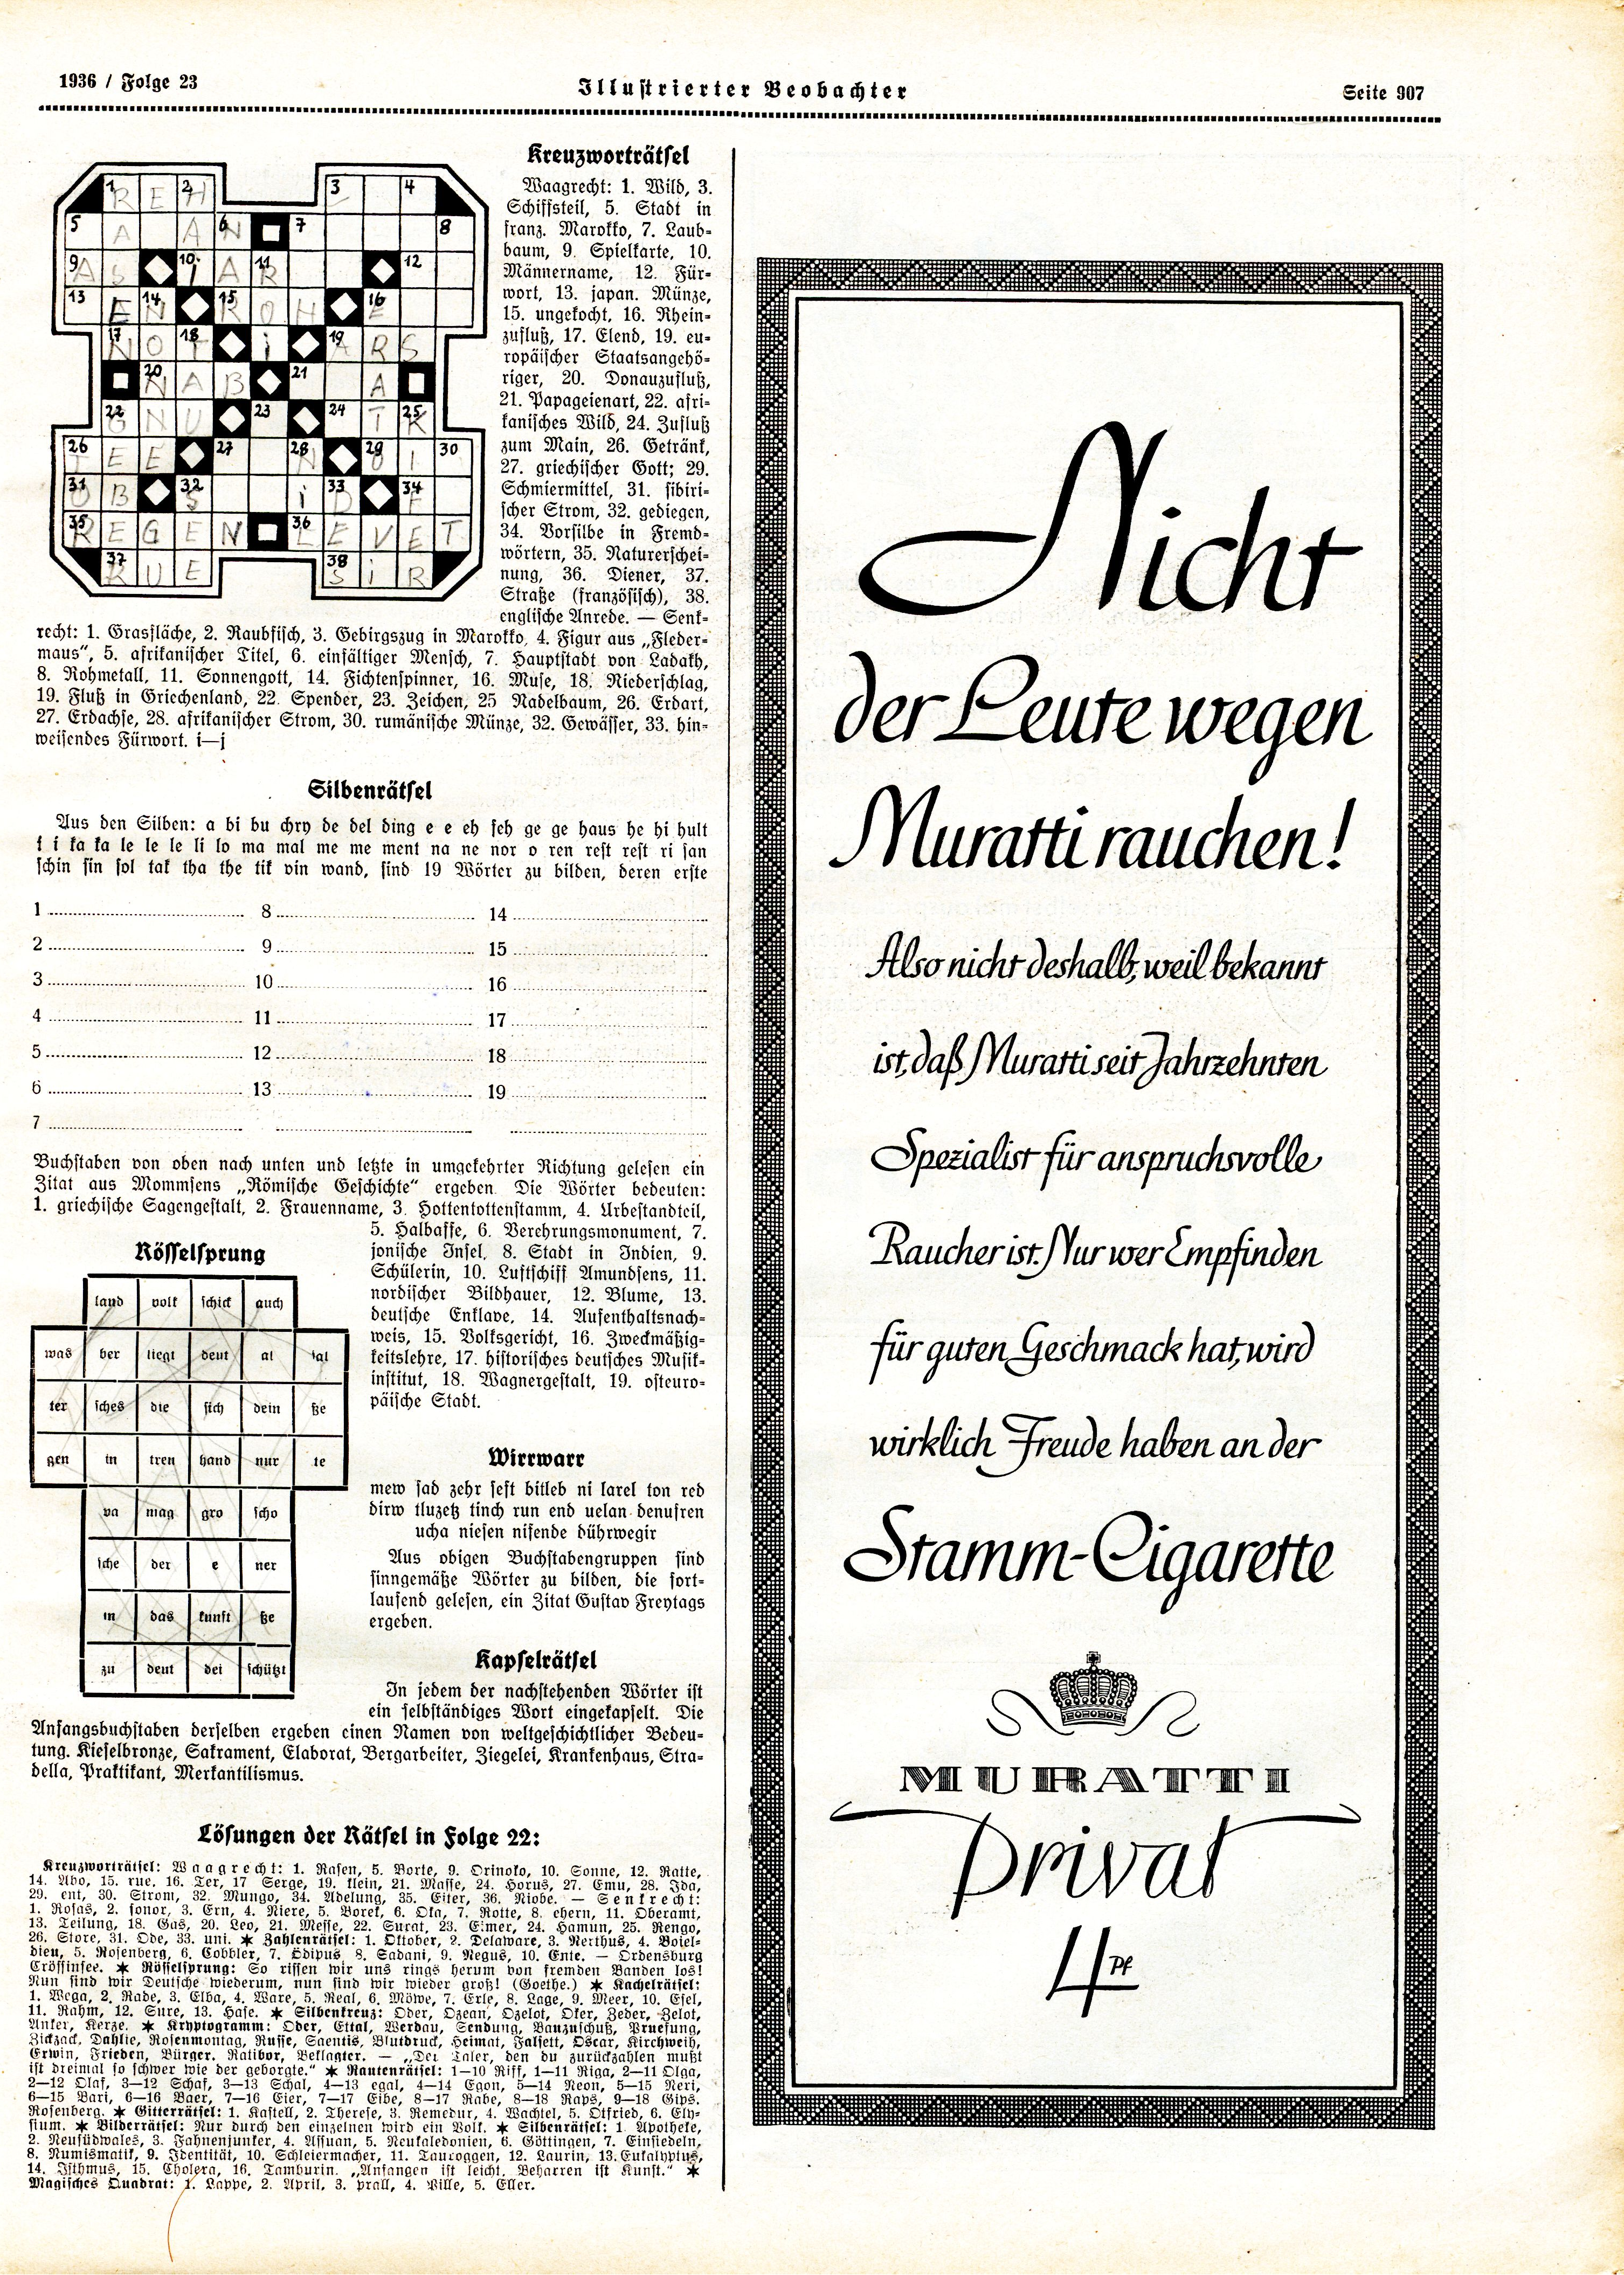 1936 / Folge 23
Illustrierter Beobachter
Seite 907
Kreuzworträtsel
Waagrecht: 1. Wild, 3.
Schiffsteil, 5. Stadt in
franz. Marokko, 7. Laub-
baum, 9. Spielkarte, 10.
Männername, 12. Für-
wort, 13. japan. Münze,
15. ungekocht, 16. Rhein-
zufluß, 17. Elend, 19. eu-
ropäischer Staatsangehö-
riger, 20. Donauzufluß,
21. Papageienart, 22. afri-
kanisches Wild, 24. Zufluß
zum Main, 26. Getränk,
27. griechischer Gott; 29.
Schmiermittel, 31. sibiri-
scher Strom, 32. gediegen,
34. Vorsilbe in Fremd-
wörtern, 35. Naturerschei-
nung, 36. Diener, 37.
Straße (französisch), 38.
englische Anrede. — Senk-
recht: 1. Grasfläche, 2. Raubfisch, 3. Gebirgszug in Marokko, 4. Figur aus „Fleder-
maus“, 5. afrikanischer Titel, 6. einfältiger Mensch, 7. Hauptstadt von Ladakh,
8. Rohmetall, 11. Sonnengott, 14. Fichtenspinner, 16. Muse, 18. Niederschlag,
19. Fluß in Griechenland, 22. Spender, 23. Zeichen, 25 Nadelbaum, 26. Erdart,
27. Erdachse, 28. afrikanischer Strom, 30. rumänische Münze, 32. Gewässer, 33. hin-
weisendes Fürwort. i—j
Silbenrätsel
Aus den Silben: a bi bu chry de del ding e e eh feh ge ge haus he hi hult
i i ka ka le le le li lo ma mal me me ment na ne nor o ren rest rest ri san
schin sin sol tak tha the tik vin wand, sind 19 Wörter zu bilden, deren erste
1 8 14
2 9 15
3 10 16
4 11 17
5 12 18
6 13 19
7
Buchstaben von oben nach unten und letzte in umgekehrter Richtung gelesen ein
Zitat aus Mommsens „Römische Geschichte“ ergeben. Die Wörter bedeuten:
1. griechische Sagengestalt, 2. Frauenname, 3. Hottentottenstamm, 4. Urbestandteil,
5. Halbaffe, 6. Verehrungsmonument, 7.
jonische Insel, 8. Stadt in Indien, 9.
Schülerin, 10. Luftschiff Amundsens, 11.
nordischer Bildhauer, 12. Blume, 13.
deutsche Enklave, 14. Aufenthaltsnach-
weis, 15. Volksgericht, 16. Zweckmäßig-
keitslehre, 17. historisches deutsches Musik-
institut, 18. Wagnergestalt, 19. osteuro-
päische Stadt.
Rösselsprung
land volk schick auch
was ber liegt deut al tal
ter sches die sich dein ße
gen in treu hand nur te
va mag gro scho
sche der e ner
in das kunft ße
zu deut dei schützt
Wirrwarr
mew sad zehr fest bitleb ni larel ton red
dirw tluzetz tinch run end uelan denufren
ucha niesen nisende dührwegir
Aus obigen Buchstabengruppen sind
sinngemäße Wörter zu bilden, die fort-
laufend gelesen, ein Zitat Gustav Freytags
ergeben.
Kapselrätsel
In jedem der nachstehenden Wörter ist
ein selbständiges Wort eingekapselt. Die
Anfangsbuchstaben derselben ergeben einen Namen von weltgeschichtlicher Bedeu-
tung. Kieselbronze, Sakrament, Elaborat, Bergarbeiter, Ziegelei, Krankenhaus, Stra-
della, Praktikant, Merkantilismus.
Lösungen der Rätsel in Folge 22:
Kreuzworträtsel: Waagrecht: 1. Rasen, 5. Borte, 9. Orinoko, 10. Sonne, 12. Ratte,
14. Abo, 15. rue, 16. Ter, 17 Serge, 19. klein, 21. Masse, 24. Horus, 27. Emu, 28. Ida,
29. ent, 30. Strom, 32. Mungo, 34. Adelung, 35. Eiter, 36. Niobe. — Senkrecht:
1. Rosas, 2. sonor, 3. Ern, 4. Niere, 5. Boret, 6. Oka, 7. Rotte, 8. ehern, 11. Oberamt,
13. Teilung, 18. Gas, 20. Leo, 21. Messe, 22. Surat, 23. Eimer, 24. Hamun, 25. Rengo,
26. Store, 31. Ode, 33. uni. ✶ Zahlenrätsel: 1. Oktober, 2. Delaware, 3. Nerthus, 4. Boiel-
dieu, 5. Rosenberg, 6. Cobbler, 7. Ödipus 8. Sadani, 9. Negus, 10. Ente. — Ordensburg
Crössinsee. ✶ Rösselsprung: So rissen wir uns rings herum von fremden Banden los!
Nun sind wir Deutsche wiederum, nun sind wir wieder groß! (Goethe.) ✶ Kachelrätsel:
1. Wega, 2. Rade, 3. Elba, 4. Ware, 5. Real, 6. Möwe, 7. Erle, 8. Lage, 9. Meer, 10. Esel,
11. Rahm, 12. Sure, 13. Hase. ✶ Silbenkreuz: Oder, Ozean, Ozelot, Oker, Zeder, Zelot,
Anker, Kerze. ✶ Kryptogramm: Oder, Ettal, Werdau, Sendung, Bauzuschuß, Pruefung,
Zickzack, Dahlie, Rosenmontag, Russe, Saentis, Blutdruck, Heimat, Falsett, Oscar, Kirchweih,
Erwin, Frieden, Bürger, Ratibor, Beklagter. — „Der Taler, den du zurückzahlen mußt
ist dreimal so schwer wie der geborgte.“ ✶ Rautenrätsel: 1—10 Riff, 1—11 Riga, 2—11 Olga,
2—12 Olaf, 3—12 Schaf, 3—13 Schal, 4—13 egal, 4—14 Egon, 5—14 Neon, 5—15 Neri,
6—15 Bari, 6—16 Baer, 7—16 Eier, 7—17 Eibe, 8—17 Rabe, 8—18 Raps, 9—18 Gips.
Rosenberg. ✶ Gitterrätsel: 1. Kastell, 2. Therese, 3. Remedur, 4. Wachtel, 5. Otfried, 6. Ely-
sium. ✶ Bilderrätsel: Nur durch den einzelnen wird ein Volk. ✶ Silbenrätsel: 1. Apotheke,
2. Neusüdwales, 3. Fahnenjunker, 4. Assuan, 5. Neukaledonien, 6. Göttingen, 7. Einsiedeln,
8. Numismatik, 9. Identität, 10. Schleiermacher, 11. Tauroggen, 12. Laurin, 13. Eukalyptus,
14. Isthmus, 15. Cholera, 16. Tamburin. „Anfangen ist leicht, Beharren ist Kunst.“ ✶
Magisches Quadrat: 1. Lappe, 2. April, 3. prall, 4. Pille, 5. Eller.
Nicht
der Leute wegen
Muratti rauchen!
Also nicht deshalb, weil bekannt
ist, daß Muratti seit Jahrzehnten
Spezialist für anspruchsvolle
Raucher ist. Nur wer Empfinden
für guten Geschmack hat, wird
wirklich Freude haben an der
Stamm-Cigarette
MURATTI
Privat
4 Pf